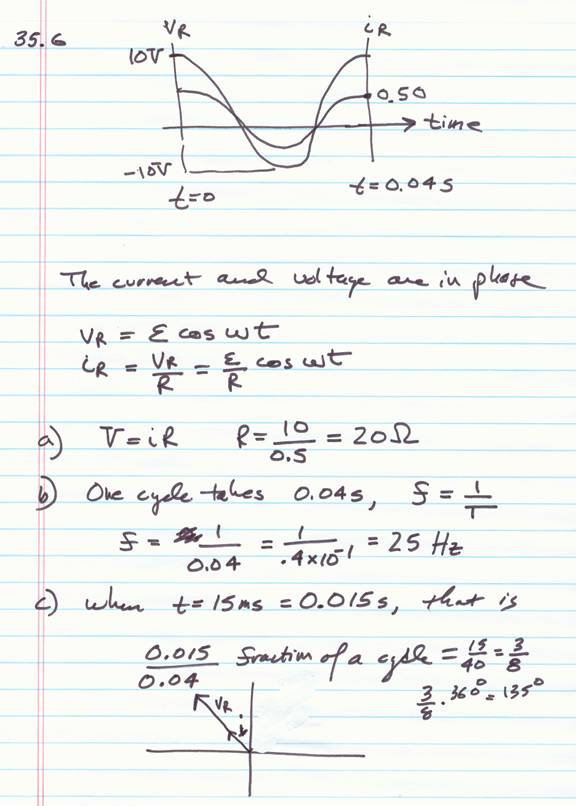 35.6
VR iR
10V
0.50
time
-10V
t=0 t=0.04s
The current and voltage are in phase
VR = ε cos ωt
iR = VR/R = ε/R cos ωt
a) V=iR R = 10/0.5 = 20Ω
b) One cycle takes 0.04s, f = 1/T
f = 1/0.04 = 1/.4×10⁻¹ = 25 Hz
c) when t=15ms = 0.015s, that is
0.015/0.04 fraction of a cycle = 15/40 = 3/8
3/8 · 360° = 135°
VR